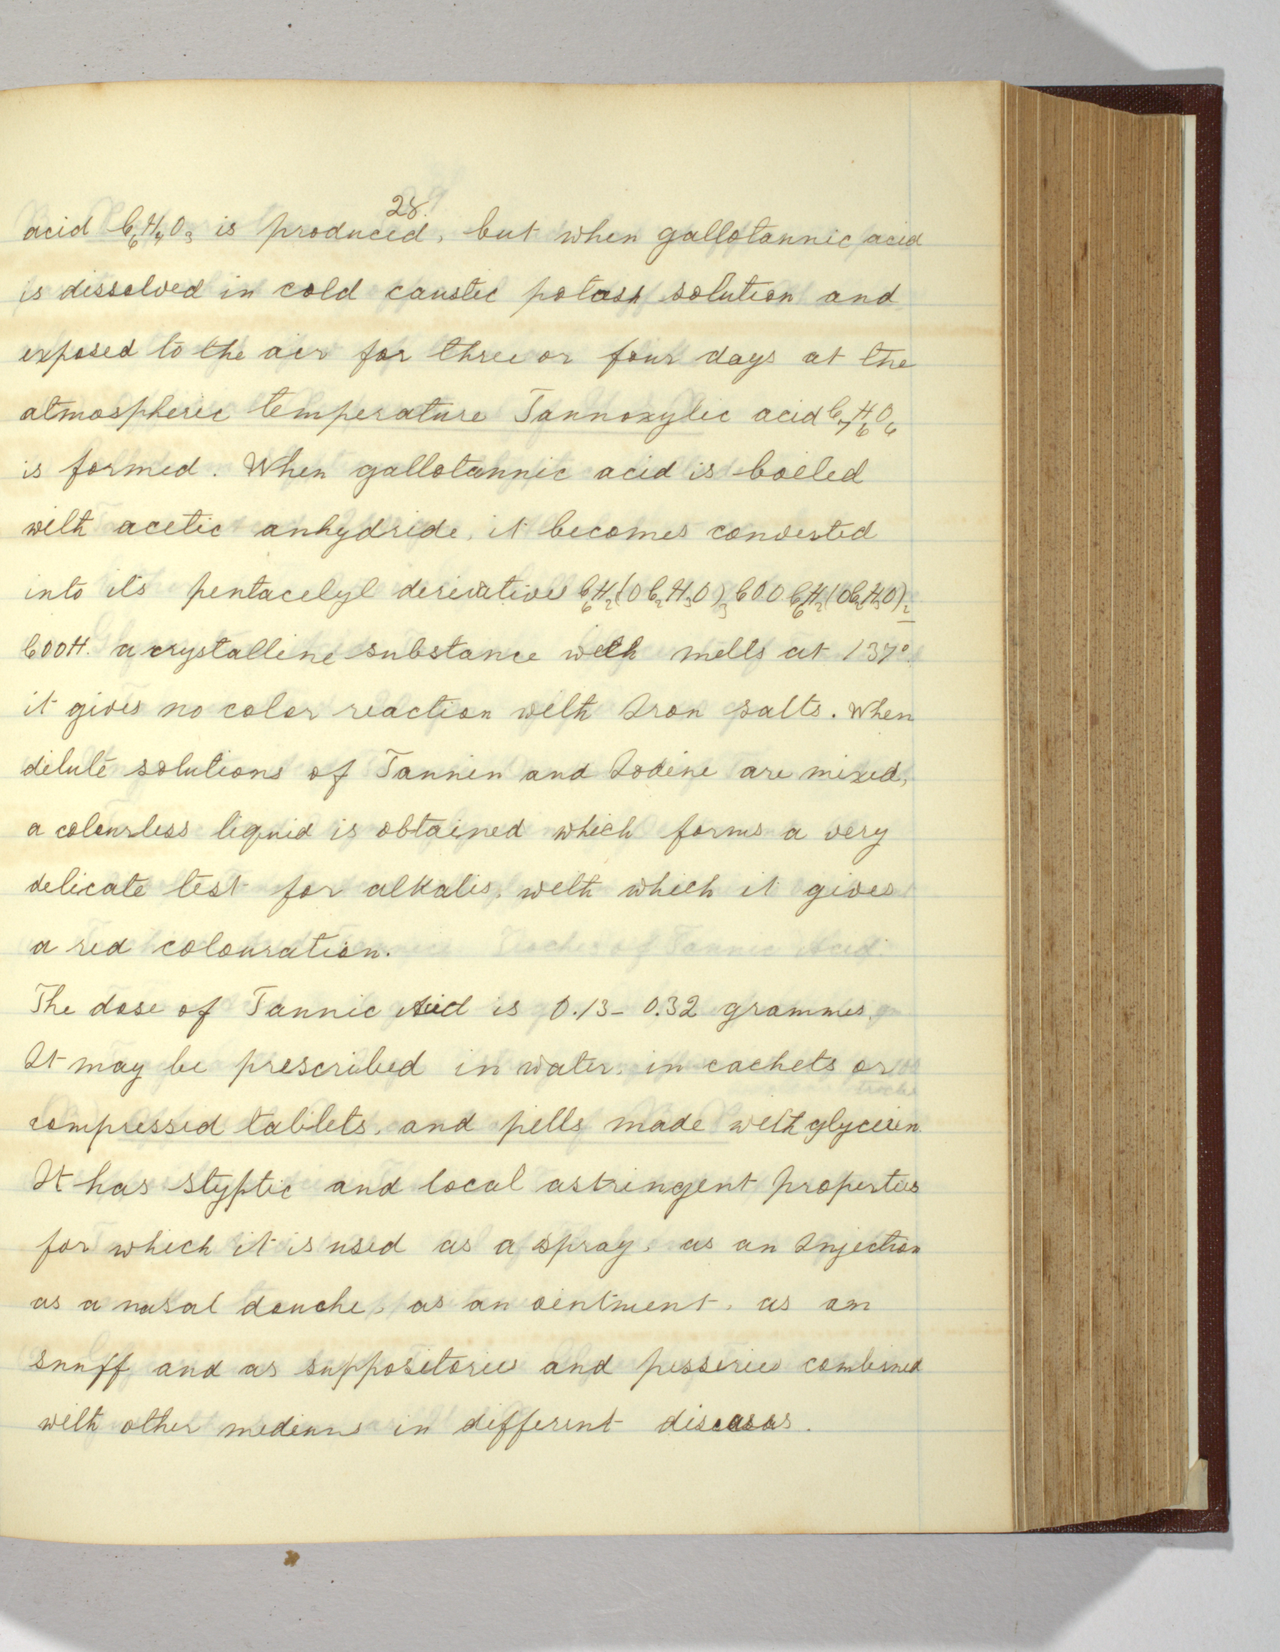 28.
acid C6H4O3 is produced, but when gallotannic acid
is dissolved in cold caustic potash solution and
exposed to the air for three or four days at the
atmospheric temperature Tannoxylic acid C7H6O6
is formed. When gallotannic acid is boiled
with acetic anhydride, it becomes converted
into its pentacetyl derivative C6H2(OC2H3O)3COOC6H2(OC2H3O)2
COOH. a crystalline substance wich melts at 137°.
it gives no color reaction with Iron salts. When
dilute solutions of Tannin and Iodine are mixed,
a colourless liquid is obtained which forms a very
delicate test for alkalis, with which it gives
a red colouration.
The dose of Tannic Acid is 0.13 - 0.32 grammes.
It may be prescribed in water, in cachets or
compressed tablets, and pills made with glycerin
It has styptic and local astringent properties
for which it is used as a spray, as an Injection
as a nasal douche, as an ointment, as an
snuff and as suppositories and pessaries combined
with other in different diseases.